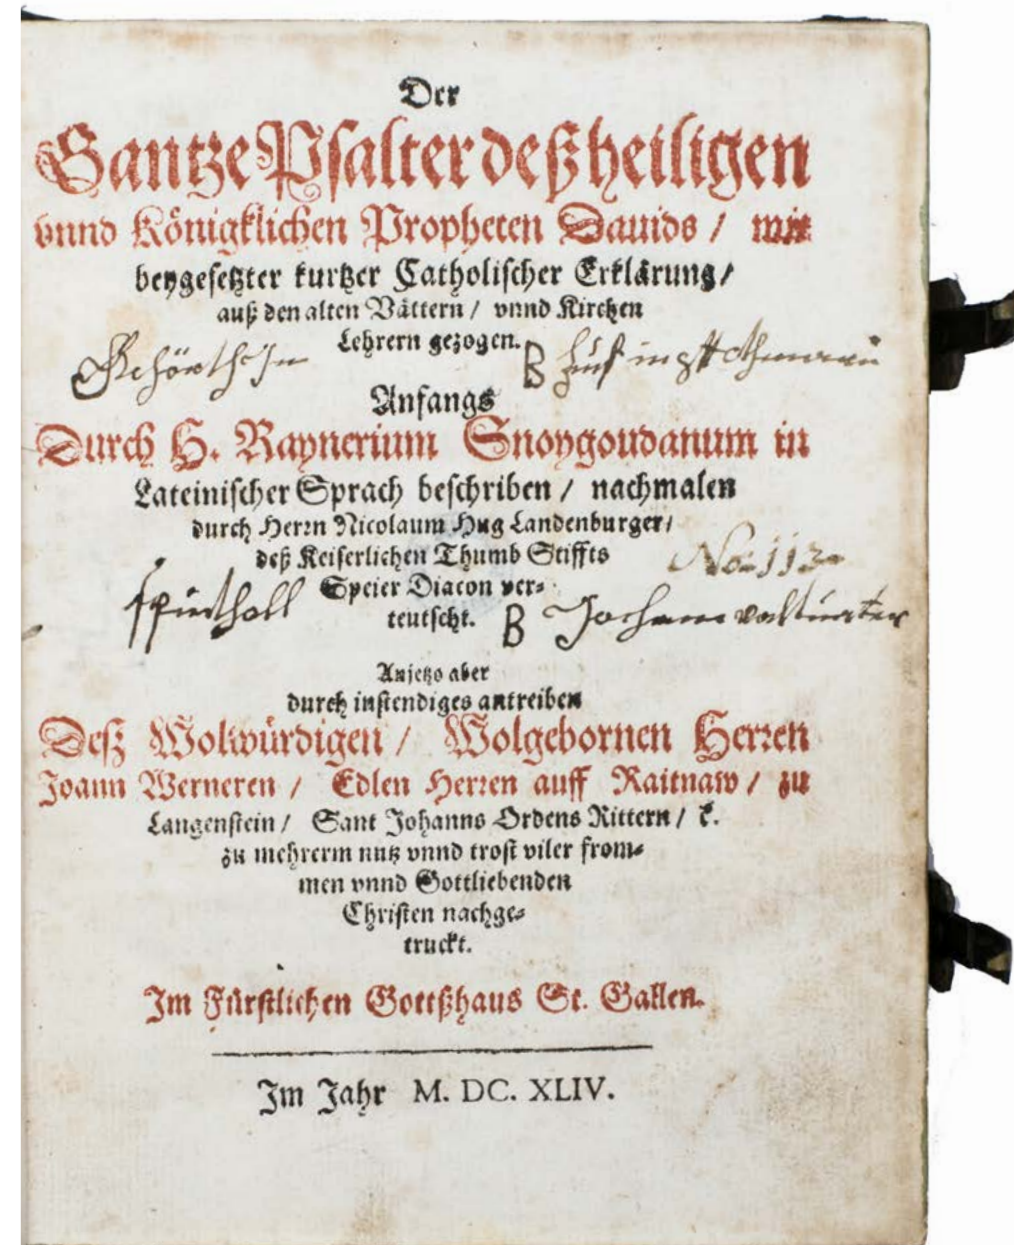 Der
Gantze Psalter deß heiligen
vnnd Königklichen Propheten Dauids / mit
beygesetzter kurtzer Catholischer Erklärung /
auß den alten Vättern / vnnd Kirchen
Lehrern gezogen.
Gehörth In B
Anfangs
Durch H. Raynerium Snoygoudanum in
Lateinischer Sprach beschriben / nachmalen
durch Herrn Nicolaum Hug Landenburger /
deß Keiserlichen Thumb Stiffts
No: 113
Speier Diacon ver-
teutscht.
B
Anjetzo aber
durch instendiges antreiben
Deß Wolwürdigen / Wolgebornen Herren
Joann Werneren / Edlen Herren auff Raitnaw / zu
Langenstein / Sant Johanns Ordens Rittern / ꝛc.
zu mehrerm nutz vnnd trost viler from-
men vnnd Gottliebenden
Christen nachge-
truckt.
Im Fürstlichen Gottßhaus St. Gallen.
Im Jahr M. DC. XLIV.